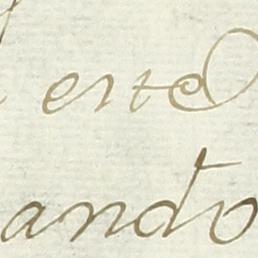 este
ando